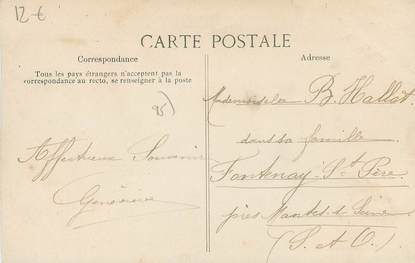 12-6
CARTE POSTALE
Correspondance
Adresse
Tous les pays étrangers n'acceptent pas la
correspondance au recto, se renseigner à la poste
95)
Affectueux Souvenir
Geneviève
Mademoiselle B. Hallot
dans sa famille
Fontenay-St Père
près Mantes s. Seine
(S. et O.)